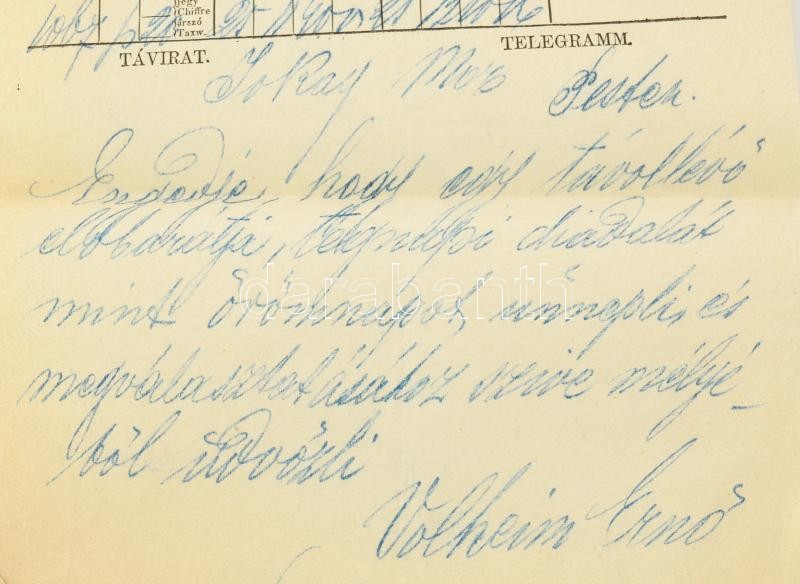 jegy
(Chiffre
járszó
(Taxw.
TÁVIRAT. TELEGRAMM.
Jokay Mor Pesten.
Engedje, hogy egy távollévő
előbarátja, tegnapi diadalát
mint örömnapot, ünnepli, és
megválasztatásához szive mélyé-
ből üdvözli
Volheim Ernő
darabanth